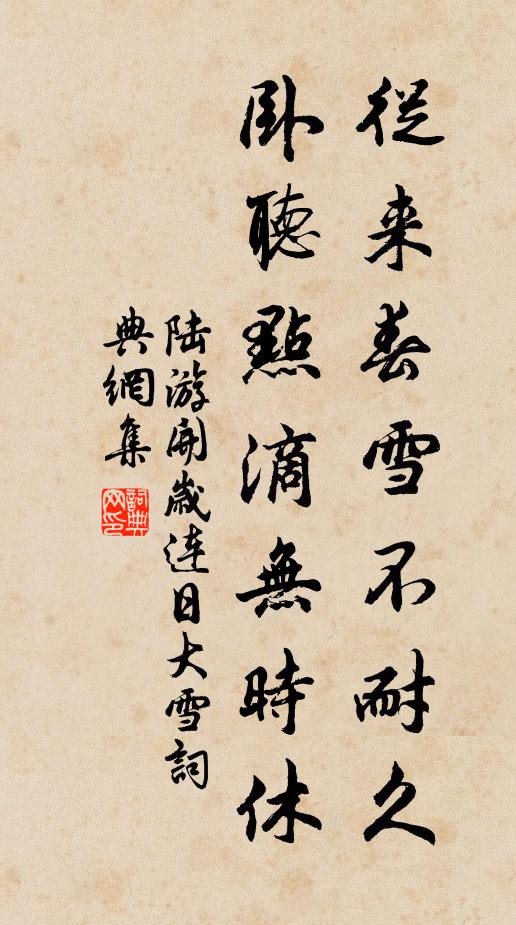 從来春雪不耐久
卧聽點滴無時休
陆游開歲連日大雪詞
典網集
詞典網印